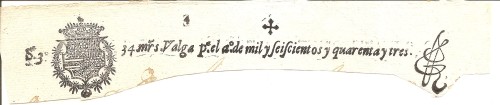 S. 3º 34 mrs. Valga pª. el aº. de mil y seiscientos y quarenta y tres.